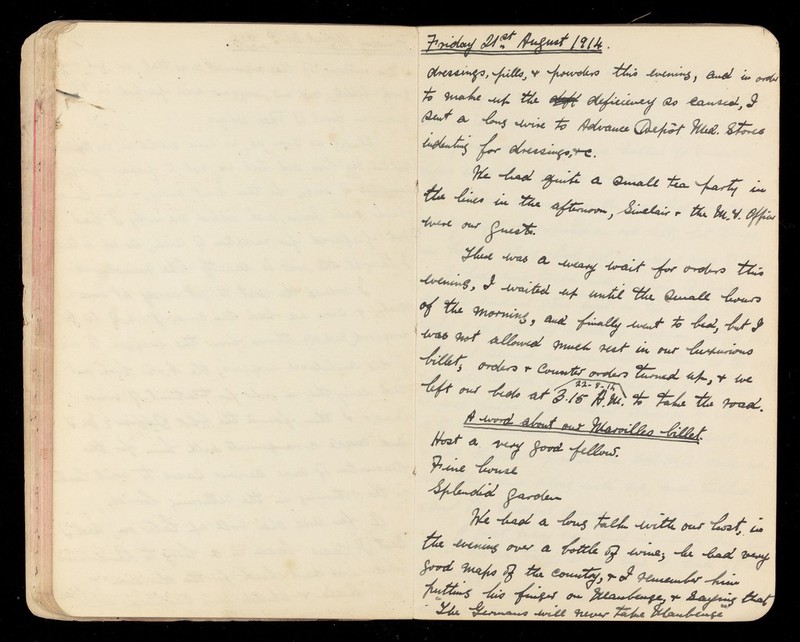 Friday 21st August 1914.
dressings, pills, & powders this evening, and in order
to make up the deft deficiency so caused, I
sent a long wire to Advance Depôt Med. Stores
indenting for dressings, &c.
We had quite a small tea party in
the lines in the afternoon, Sinclair & the M.V. Officer
were our guests.
There was a weary wait for orders this
evening, I waited up until the small hours
of the morning, and finally went to bed, but I
was not allowed much rest in our luxurious
billet; orders & counter orders turned up, & we
22-8-14
left our beds at 3.15 A.M. to take the road.
A word about our Maroilles billet.
Host a very good fellow.
Fine house
Splendid garden
We had a long talk with our host, in
the evening over a bottle of wine; he had very
good maps of the country, & I remember him
putting his finger on Maubeuge, & saying that
"The Germans will never take Maubeuge"